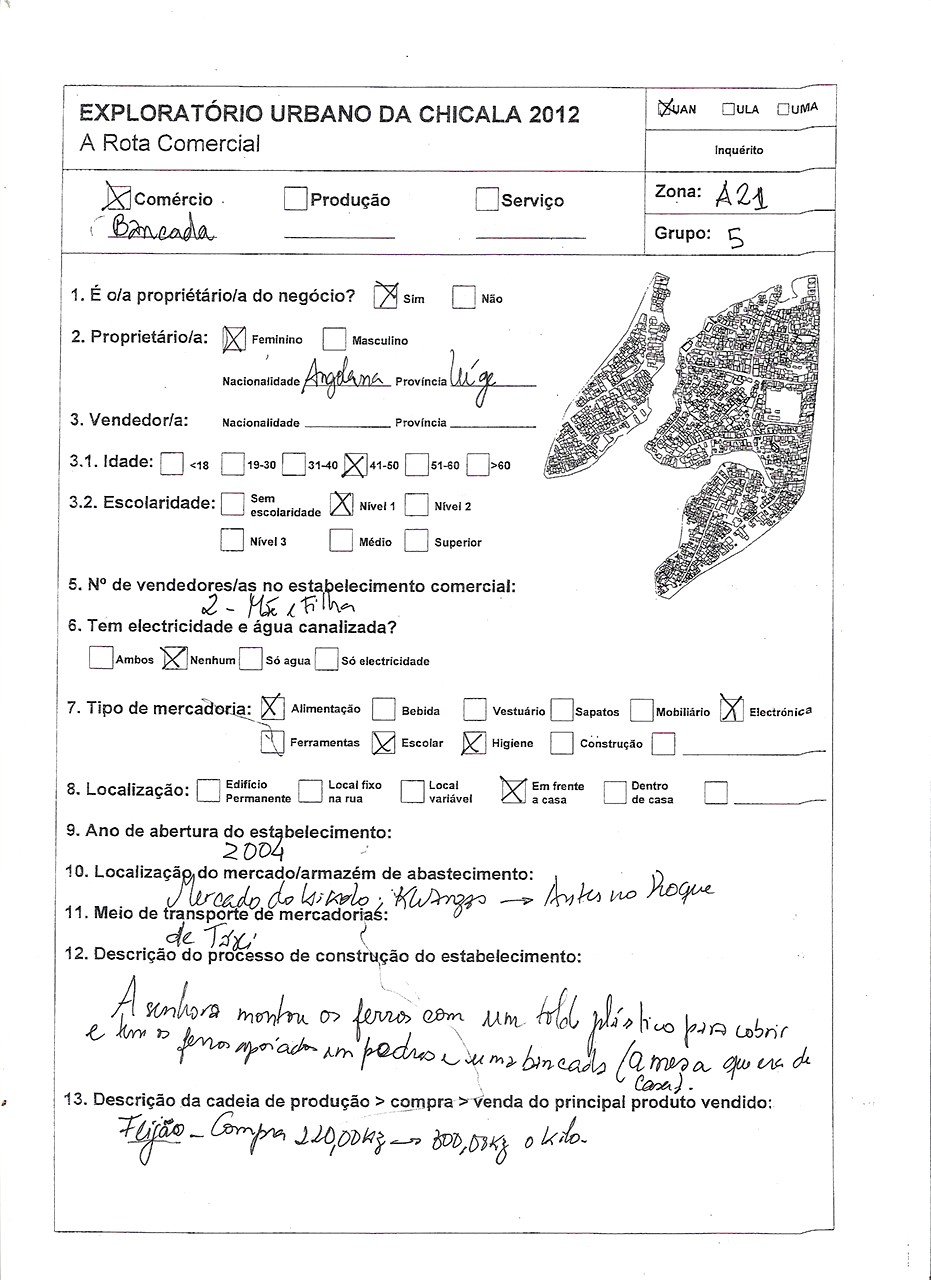 EXPLORATÓRIO URBANO DA CHICALA 2012
A Rota Comercial
UAN ULA UMA
Inquérito
Comércio Produção Serviço
Bancada
Zona: A21
Grupo: 5
1. É o/a propriétário/a do negócio? Sim Não
2. Proprietário/a: Feminino Masculino
Nacionalidade Angolana Província Uíge
3. Vendedor/a: Nacionalidade Província
3.1. Idade: <18 19-30 31-40 41-50 51-60 >60
3.2. Escolaridade: Sem escolaridade Nível 1 Nível 2
Nível 3 Médio Superior
5. Nº de vendedores/as no estabelecimento comercial:
2 - Mãe e Filha
6. Tem electricidade e água canalizada?
Ambos Nenhum Só agua Só electricidade
7. Tipo de mercadoria: Alimentação Bebida Vestuário Sapatos Mobiliário Electrónica
Ferramentas Escolar Higiene Construção
8. Localização: Edifício Permanente Local fixo na rua Local variável Em frente a casa Dentro de casa
9. Ano de abertura do estabelecimento:
2004
10. Localização do mercado/armazém de abastecimento:
Mercado do Kikolo, Kwanzas → Antes no Roque
11. Meio de transporte de mercadorias:
de Táxi
12. Descrição do processo de construção do estabelecimento:
A senhora montou os ferros com um told plástico para cobrir
e tem os ferros apoiados em pedras e uma bancada (a mesa que era de
casa).
13. Descrição da cadeia de produção > compra > venda do principal produto vendido:
Feijão - Compra 220,00kz → 300,00kz o kilo.